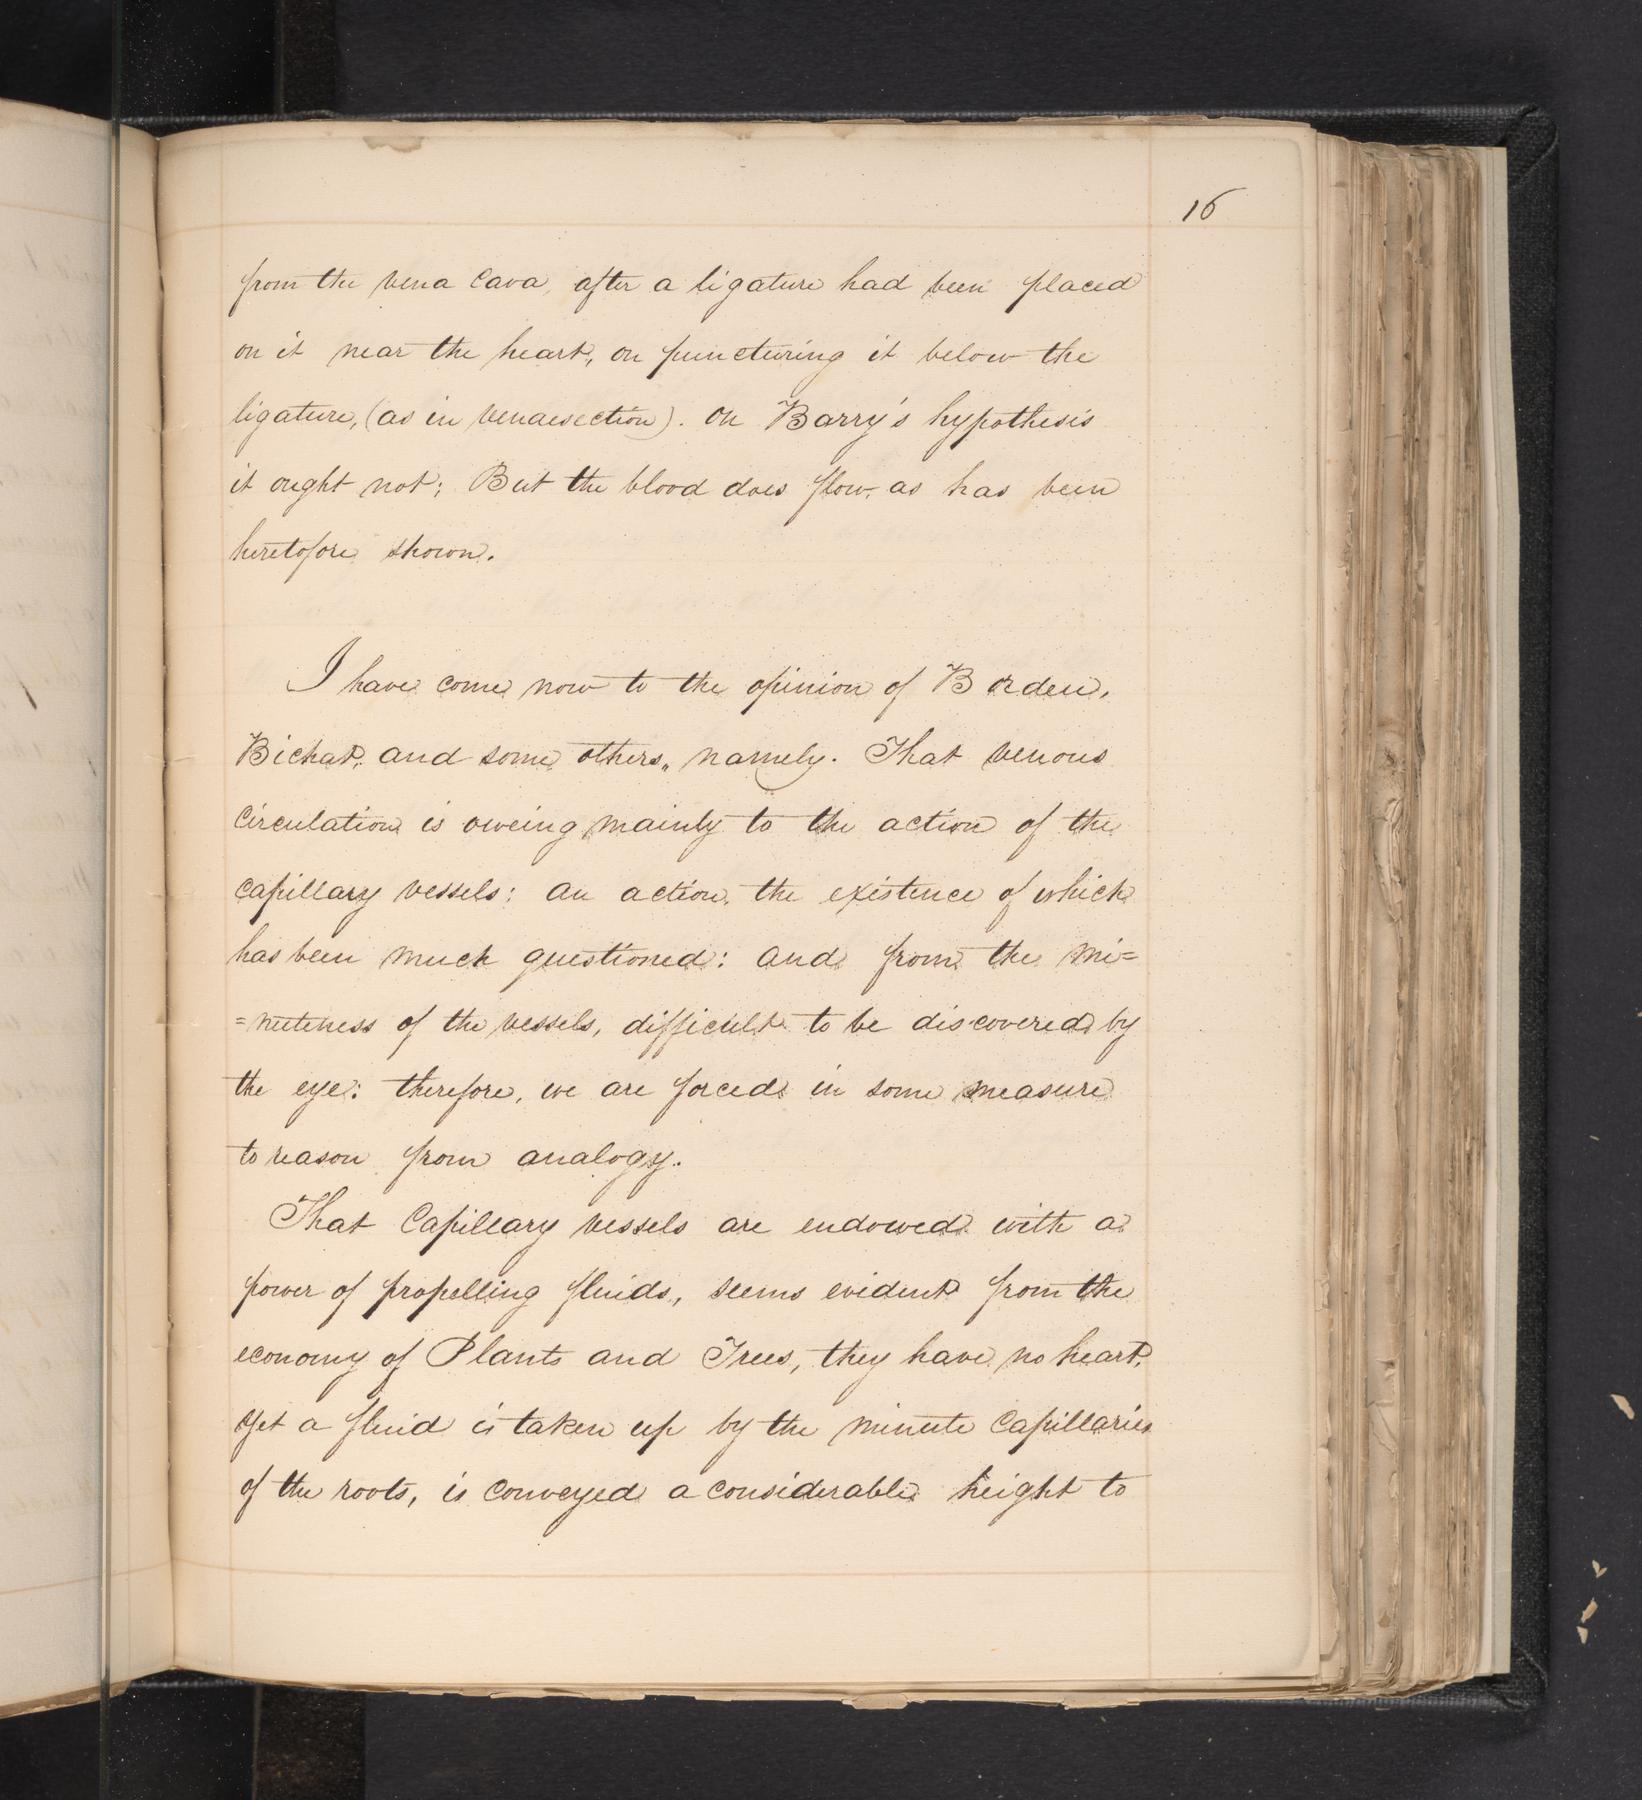 16
from the vena cava, after a ligature had been placed
on it near the heart, on puncturing it below the
ligature, (as in venaesection). On Barry's hypothesis
it ought not; But the blood does flow, as has been
heretofore shown.
I have come now to the opinion of Borden,
Bichat, and some others, namely. That venous
circulation is oweing mainly to the action of the
capillary vessels; an action, the existence of which
has been much questioned: and from the mi=
=nuteness of the vessels, difficult to be discovered by
the eye: therefore, we are forced in some measure
to reason from analogy.
That Capillary vessels are endowed with a
power of propelling fluids, seems evident from the
economy of Plants and Trees, they have no heart,
Yet a fluid is taken up by the minute Capillaries
of the roots, is conveyed a considerable height to